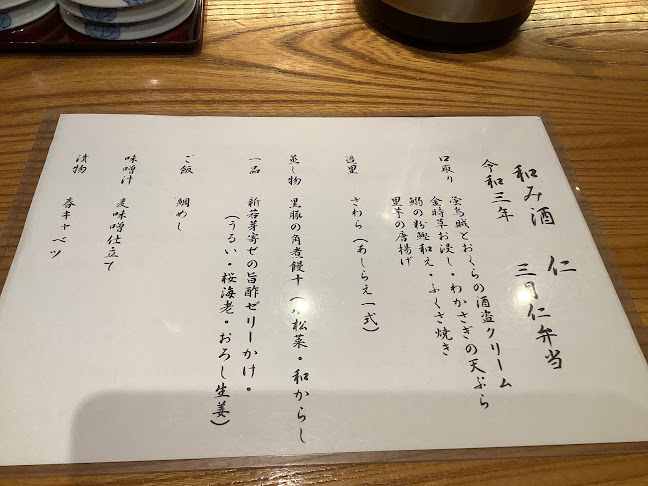 和み酒 仁
令和三年 三月仁弁当
口取り 蛍烏賊とおくらの酒盗クリーム
金時草お浸し・わかさぎの天ぷら
鰯の粉鰹和え・ふくさ焼き
里芋の唐揚げ
造里 さわら（あしらえ一式）
蒸し物 黒豚の角煮饅十（小松菜・和からし
一品 新若芽寄せの旨酢ゼリーかけ・
（うるい・桜海老・おろし生姜）
ご飯 鯛めし
味噌汁 麦味噌仕立て
漬物 春キャベツ